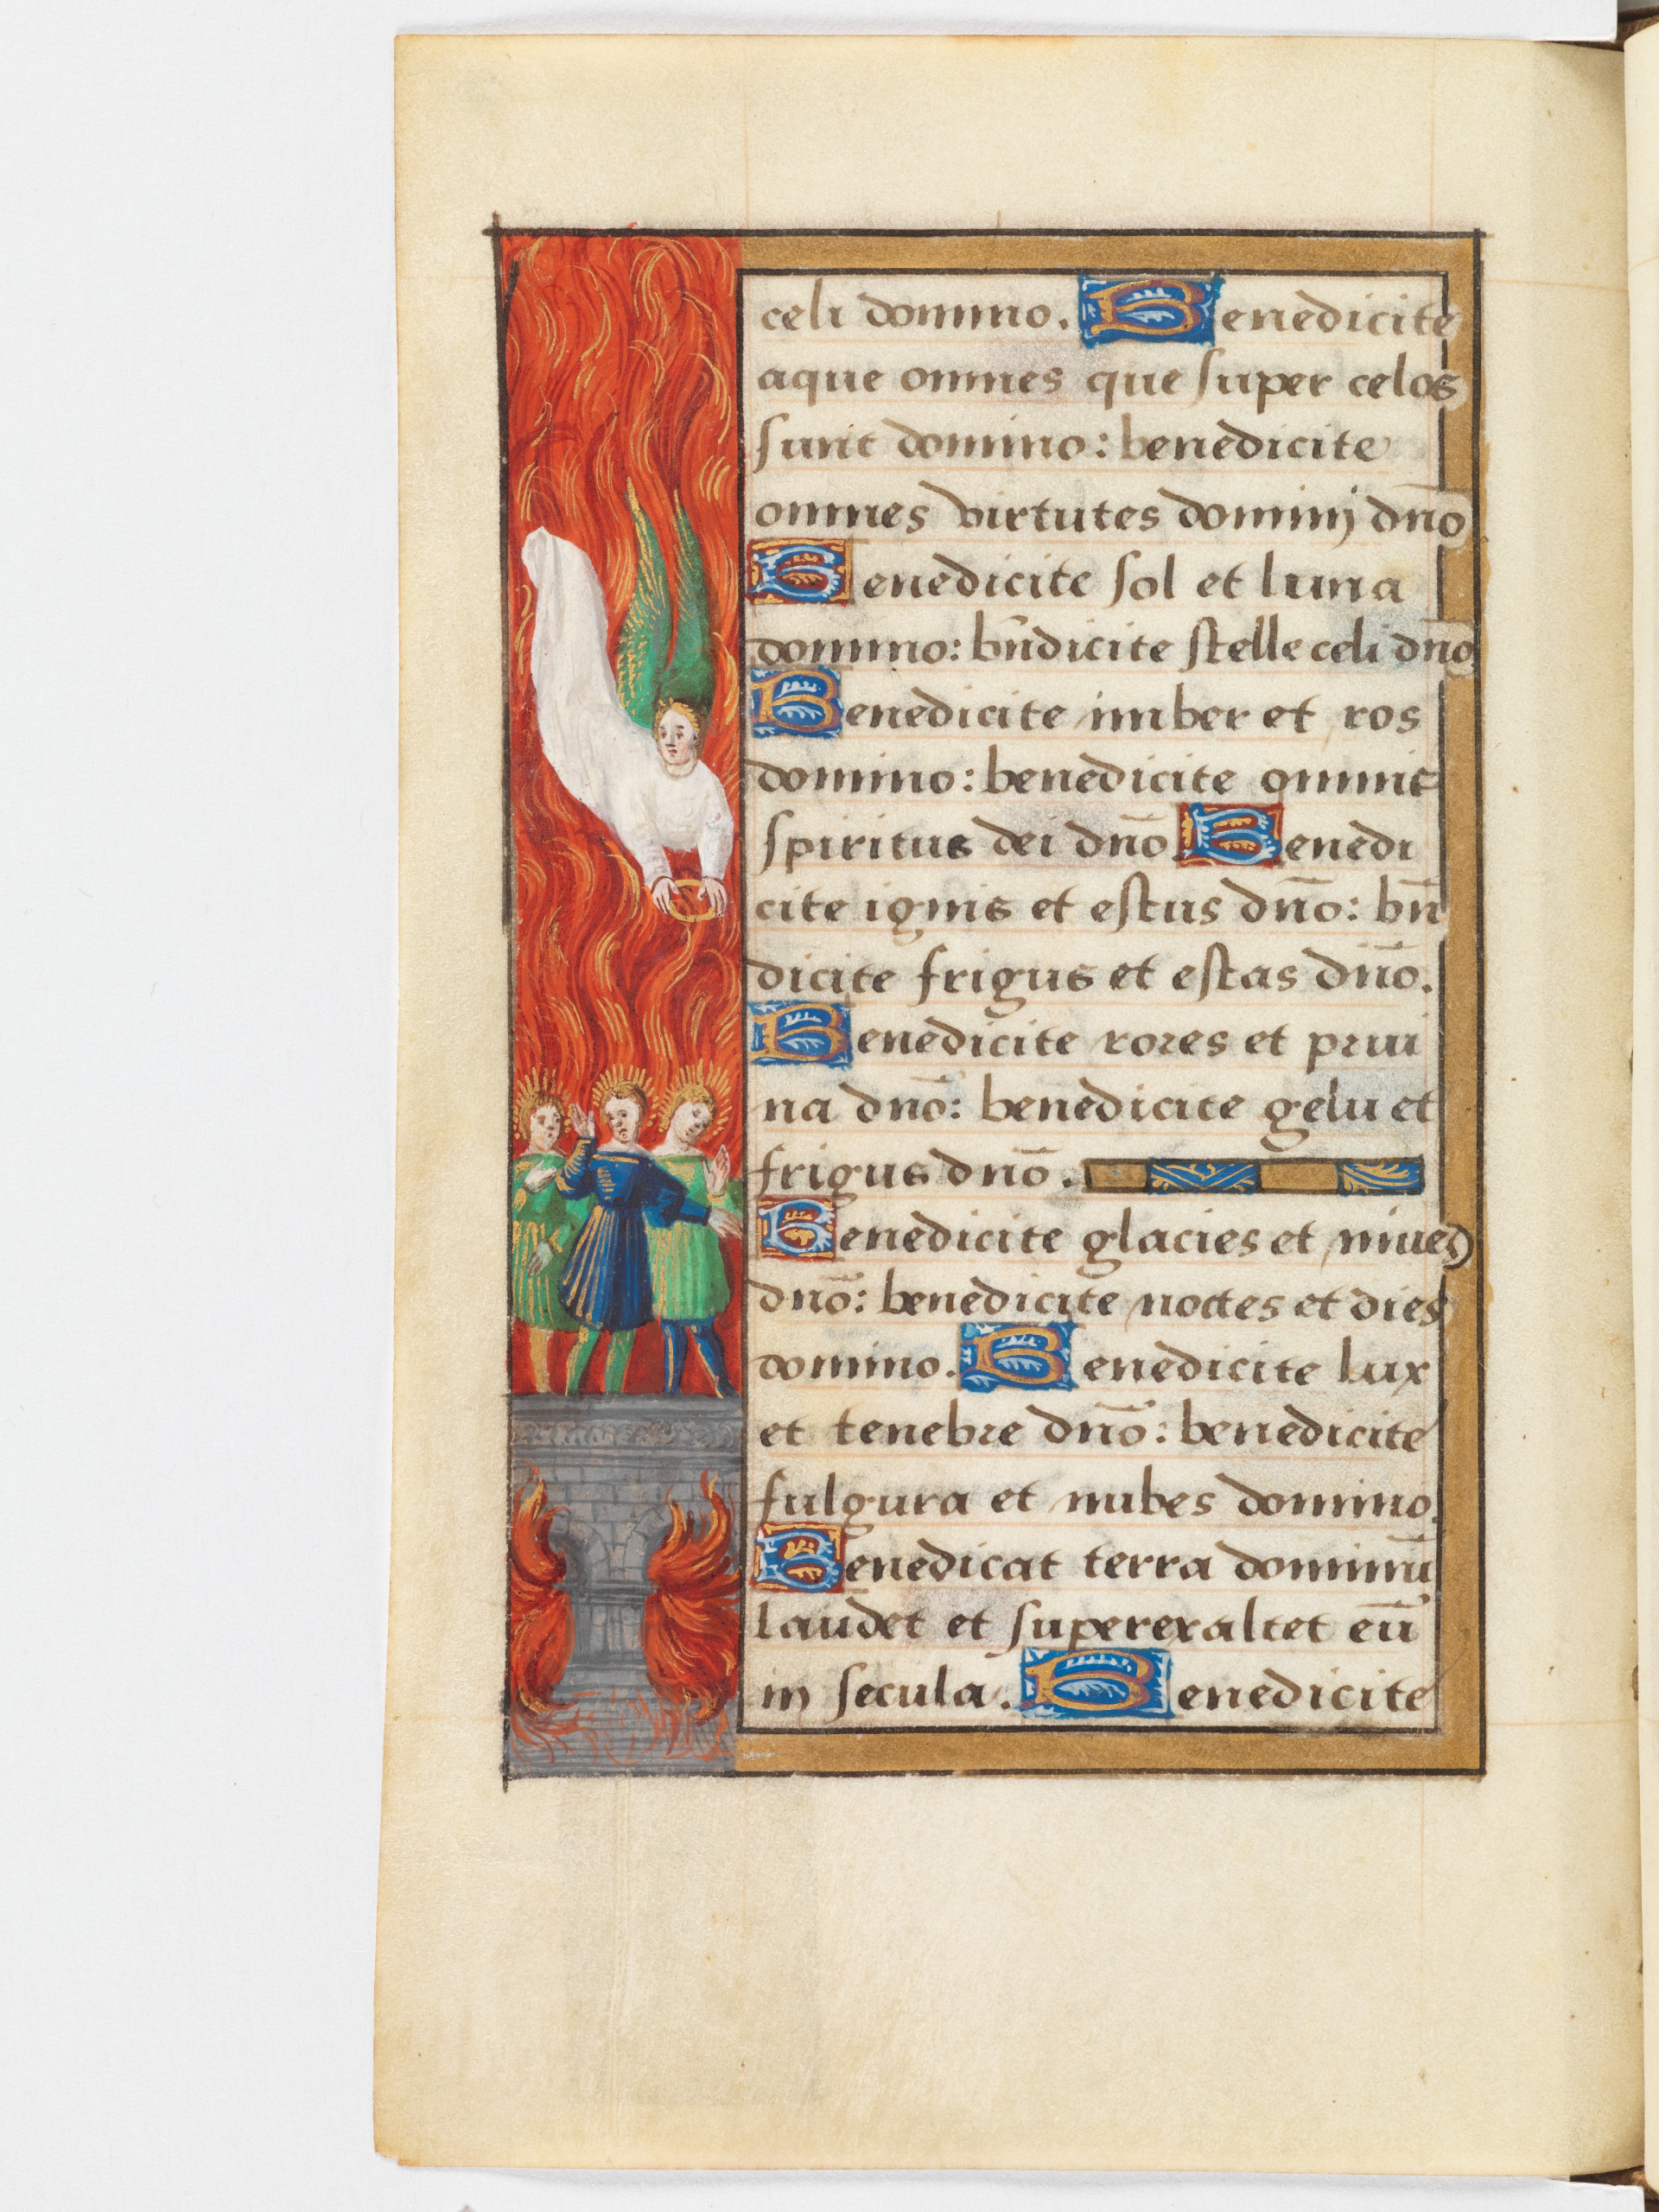 celi domino. Benedicite
aque omnes que super celos
sunt domino: benedicite
omnes virtutes dominj dn̄o
Benedicite sol et luna
domino: bn̄dicite stelle celi dn̄o
Benedicite imber et ros
domino: benedicite omnis
spiritus dei dn̄o. Benedi
cite ignis et estus dn̄o: bn̄
dicite frigus et estas dn̄o.
Benedicite rores et prui
na dn̄o: benedicite gelu et
frigus dn̄o.
Benedicite glacies et niues
dn̄o: benedicite noctes et dies
domino. Benedicite lux
et tenebre dn̄o: benedicite
fulgura et nubes domino.
Benedicat terra dominū
laudet et superexaltet eū
in secula. Benedicite